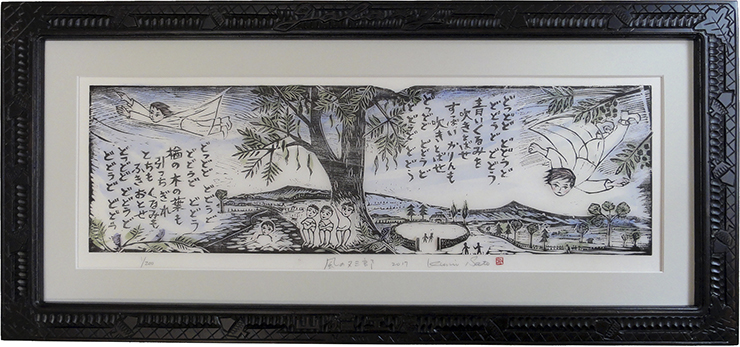 どっどど どどうど
どどうど どどう
青いくるみも
吹きとばせ
すっぱいかりんも
吹きとばせ
どっどど どどうど
どどうど どどう
どっどど どどうど
どどうど どどう
楢の木の葉も
引っちぎれ
とちもくるみも
ふきおとせ
どっどど どどうど
どどうど どどう
風の又三郎 2017